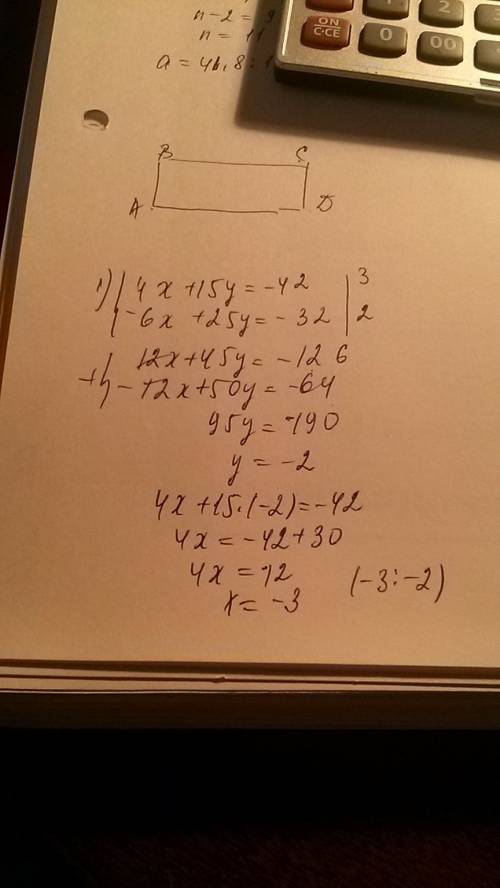 n-2=9
n=11
a=46,8:1
ON
C·CE
0
00
2
B C
A D
1) 4x+15y=-42 | 3
-6x+25y=-32 | 2
+ 12x+45y=-126
-12x+50y=-64
95y=-190
y=-2
4x+15·(-2)=-42
4x=-42+30
4x=-12
x=-3 (-3:-2)